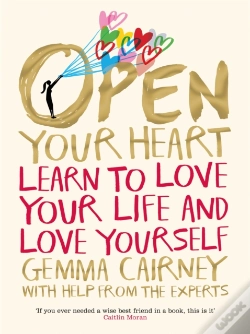 OPEN
YOUR HEART
LEARN TO LOVE
YOUR LIFE AND
LOVE YOURSELF
GEMMA CAIRNEY
WITH HELP FROM THE EXPERTS
'If you ever needed a wise best friend in a book, this is it'
Caitlin Moran
wook